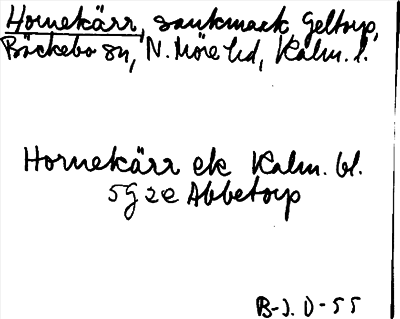 Hornekärr, sankmark Geltorp,
Bäckebo sn, N. Möre hd, Kalm. l.
Hornekärr ek Kalm. bl.
5g 2e Abbetorp
B-J. D-55